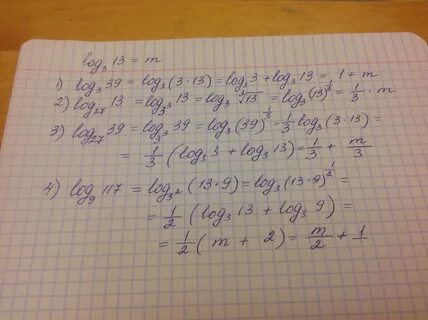 log₃ 13 = m
1) log₃ 39 = log₃ (3 · 13) = log₃ 3 + log₃ 13 = 1 + m
2) log₂₇ 13 = log₃³ 13 = log₃ ∛13 = log₃ (13)^(1/3) = 1/3 · m
3) log₂₇ 39 = log₃³ 39 = log₃ (39)^(1/3) = 1/3 log₃ (3 · 13) =
= 1/3 (log₃ 3 + log₃ 13) = 1/3 + m/3
4) log₉ 117 = log₃² (13 · 9) = log₃ (13 · 9)^(1/2) =
= 1/2 (log₃ 13 + log₃ 9) =
= 1/2 (m + 2) = m/2 + 1